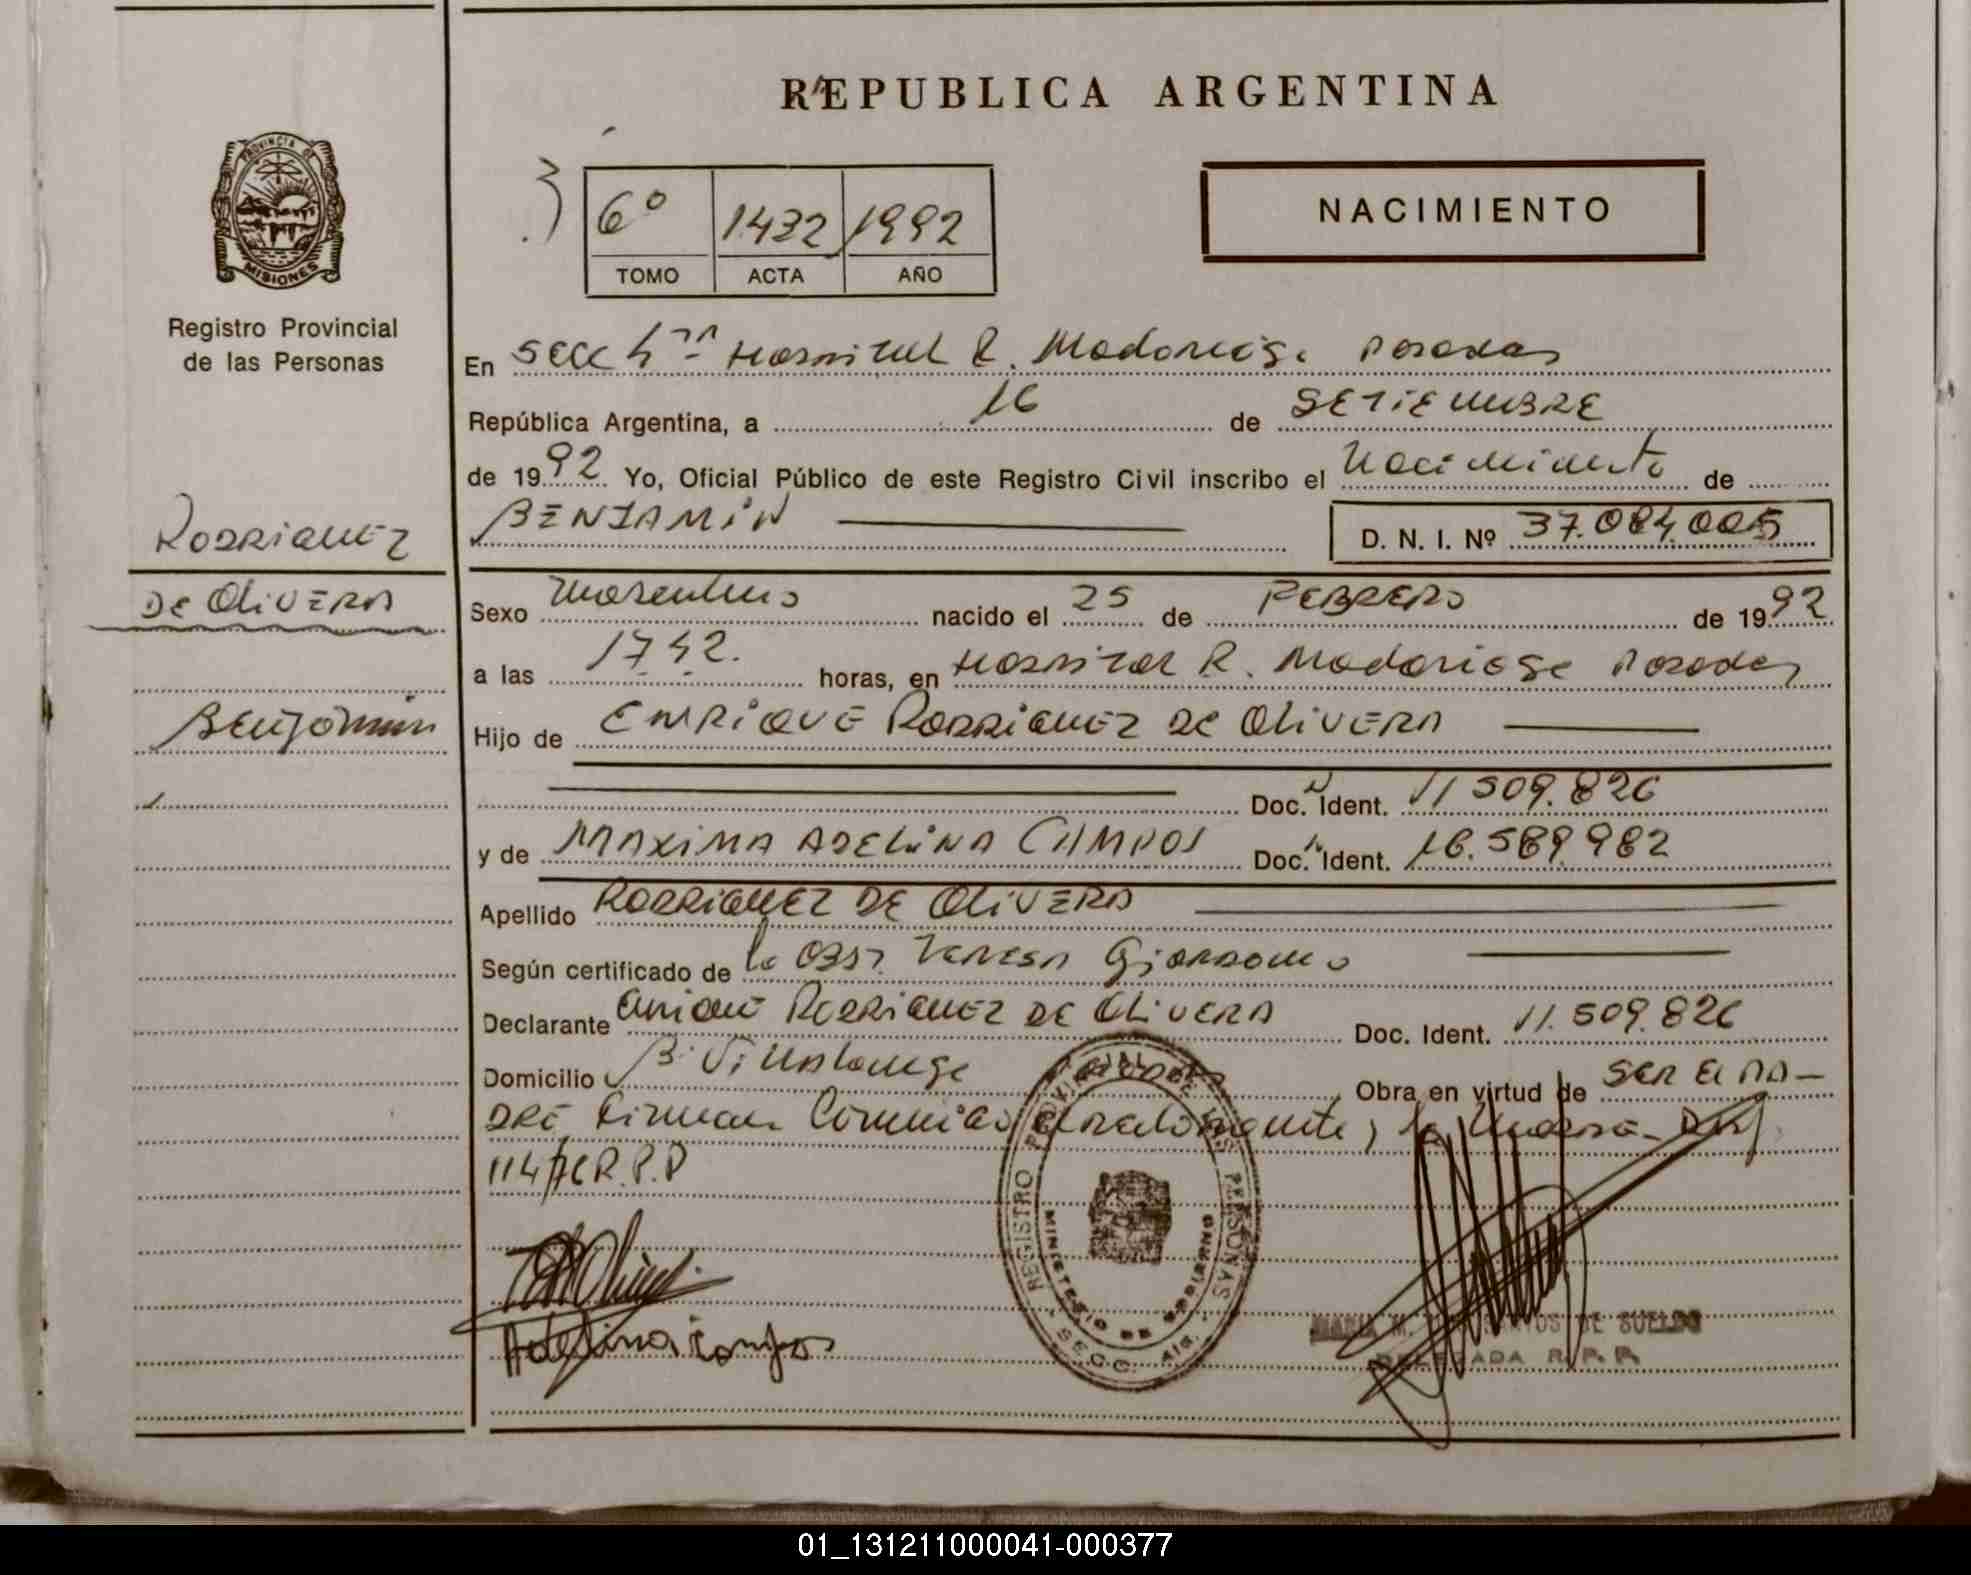 REPUBLICA ARGENTINA
PROVINCIA DE
MISIONES
Registro Provincial
de las Personas
6º 1432 1992
TOMO ACTA AÑO
NACIMIENTO
En Secc 4ta Hospital R. Madariaga Posadas
República Argentina, a 16 de SETIEMBRE
de 1992 Yo, Oficial Público de este Registro Civil inscribo el Nacimiento de
BENJAMIN
D. N. I. Nº 37.084.005
RODRIGUEZ
DE OLIVERA
Benjamin
Sexo Masculino nacido el 25 de FEBRERO de 1992
a las 17 42. horas, en Hospital R. Madariaga Posadas
Hijo de ENRIQUE RODRIGUEZ DE OLIVERA
Doc. Ident. 11 509.826
y de MAXIMA ADELINA CAMPOS Doc. Ident. 16.589.982
Apellido RODRIGUEZ DE OLIVERA
Según certificado de la Obst. Teresa
Declarante Enrique RODRIGUEZ DE OLIVERA Doc. Ident. 11.509.826
Domicilio B. Villalonga Posadas Obra en virtud de SER El PA-
DRE Firman Comunico la
114/76 R.P.P
REGISTRO PROVINCIAL DE LAS PERSONAS
MINISTERIO DE GOBIERNO
SECC. 4ta.
Adelina Campos
MARIA M. DE SUELDO
DELEGADA R. P. P.
01_131211000041-000377